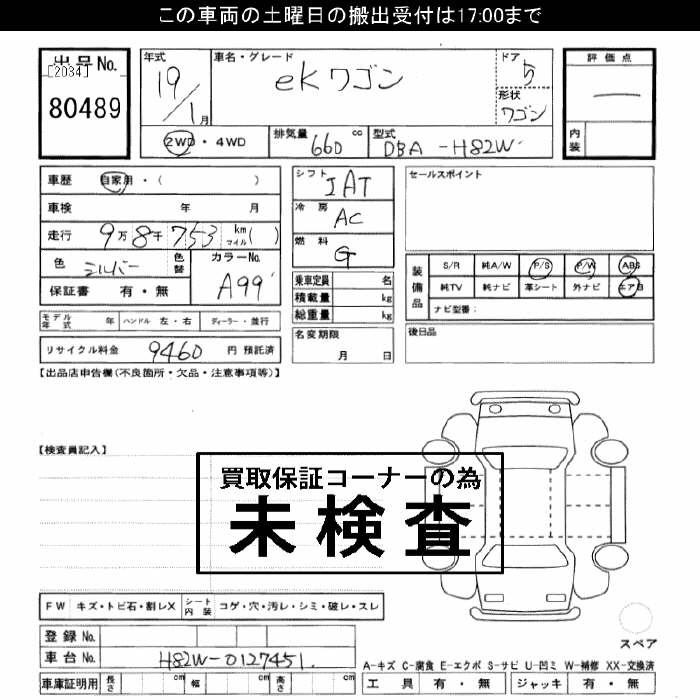 この車両の土曜日の搬出受付は17:00まで
出品No.
[2034]
80489
年式 19/1月
車名・グレード ekワゴン
ドア 5
形状 ワゴン
2WD・4WD
排気量 660 cc
型式 DBA-H82W
評価点
内装
車歴 自家用・( )
車検 年 月
走行 9万8千753 km マイル( )
色 シルバー 色替
カラーNo. A99
保証書 有・無
シフト IAT
冷房 AC
燃料 G
乗車定員 名
積載量 kg
総重量 kg
名変期限 月 日
セールスポイント
装備品
S/R 純A/W P/S P/W ABS
純TV 純ナビ 革シート 外ナビ エアB
ナビ型番:
後日品
モデル年式 年 ハンドル 左・右 ディーラー・並行
リサイクル料金 9460 円 預託済
【出品店申告欄(不良箇所・欠品・注意事項等)】
【検査員記入】
買取保証コーナーの為
未検査
FW キズ・トビ石・割レX シート内装 コゲ・穴・汚レ・シミ・破レ・スレ
登録No.
車台No. H82W-0127451
車庫証明用 長さ cm 幅 cm 高さ cm
スペア
A-キズ C-腐食 E-エクボ S-サビ U-凹ミ W-補修 XX-交換済
工具 有・無 ジャッキ 有・無